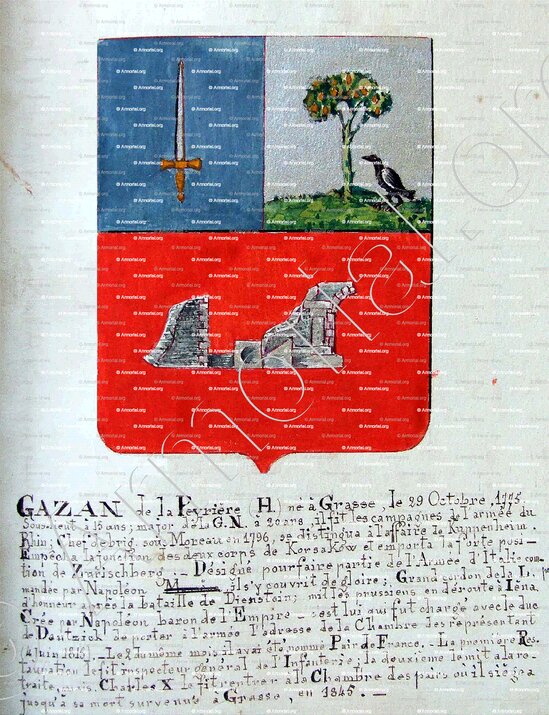 GAZAN de la Peyrière (H.) né à Grasse, le 29 Octobre, 1775.
Sous-lieut à 15 ans; major de la G.N. à 20 ans, il fit les campagnes de l'armée du
Rhin; Chef de brig. sous Moreau en 1796, se distingua à l'affaire de Kuppenheim.
Empêcha la jonction des deux corps de Korsakow et emporta la forte posi-
tion de Zurischberg. — Désigné pour faire partie de l'Armée d'Italie com-
mandée par Napoléon il s'y couvrit de gloire; Grand cordon de la L.
d'honneur après la bataille de Dienstein; mit les prussiens en déroute à Iéna.
Créé par Napoléon baron de l'Empire — c'est lui qui fut chargé avec le duc
de Dantzick de porter à l'armée l'adresse de la Chambre des représentant
Juin 1815). — Le 2 du même mois il avait été nommé Pair de France. — La première Res-
tauration le fit inspecteur général de l'Infanterie; la deuxième le mit à la re-
traite, mais Charles X le fit rentrer à la Chambre des pairs où il siégea
jusqu'à sa mort survenue à Grasse, en 1845. —
© Armorial.org